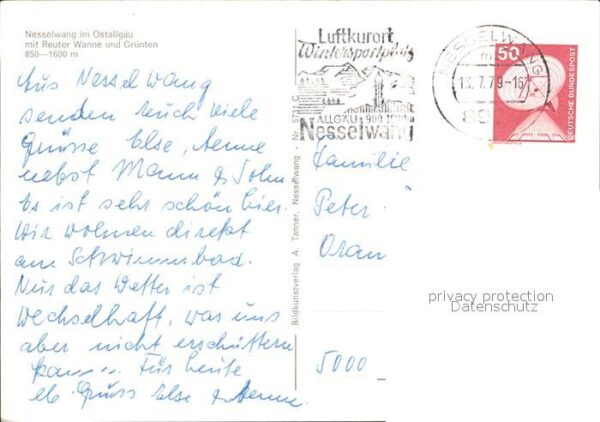 Nesselwang im Ostallgäu
mit Reuter Wanne und Grünten
850—1600 m
Aus Nesselwang
senden Euch viele
Grüsse Else, Aenne
nebst Mann & Sohn
Es ist sehr schön hier.
Wir wohnen direkt
am Schwimmbad.
Nur das Wetter ist
wechselhaft, was uns
aber nicht erschüttern
kann. Für heute
Gruss Else & Aenne.
Bildkunstverlag A. Tanner, Nesselwang - Nr.
Luftkurort
Wintersportplatz
ALLGÄU 900
Nesselwang
NESSELWANG
13.7.79-16
50
DEUTSCHE BUNDESPOST
Familie
Peter
5000
privacy protection
Datenschutz